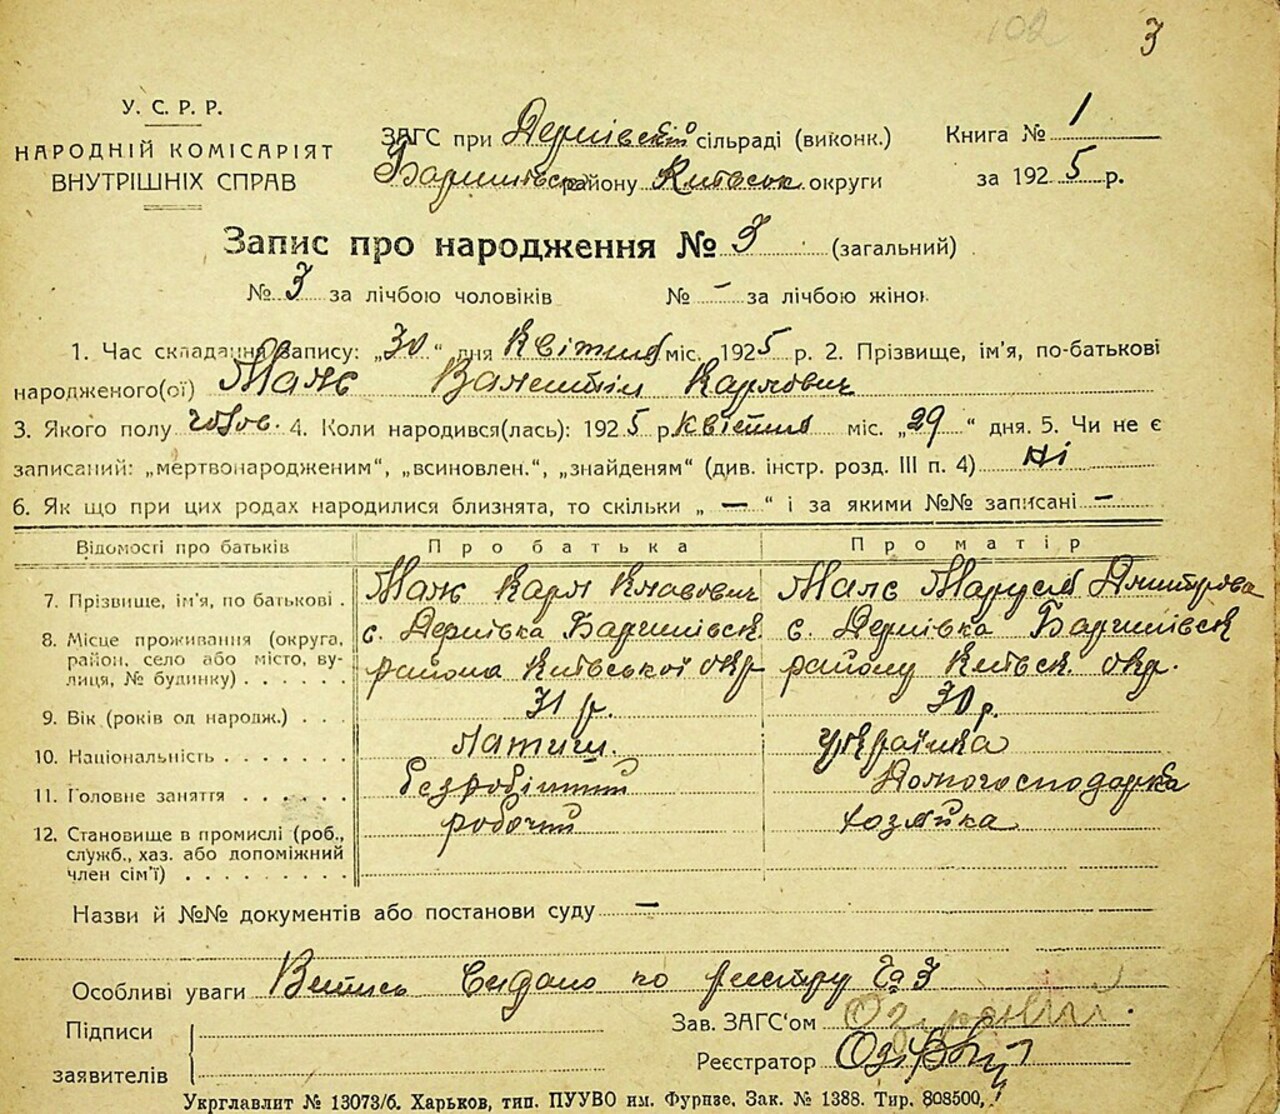 102 3
У. С. Р. Р.
НАРОДНІЙ КОМІСАРІЯТ
ВНУТРІШНІХ СПРАВ
ЗАГС при Дернівській сільраді (виконк.) Книга № 1
району Київськ округи за 1925 р.
Запис про народження № 3 (загальний)
№ 3 за лічбою чоловіків № – за лічбою жінок
1. Час складання запису: „30“ дня Квітня міс. 1925 р. 2. Прізвище, ім'я, по-батькові
народженого(ої) Карлович
3. Якого полу чолов. 4. Коли народився(лась): 1925 р. Квітня міс. „29“ дня. 5. Чи не є
записаний: „мертвонародженим“, „всиновлен.“, „знайденям“ (див. інстр. розд. III п. 4) Ні
6. Як що при цих родах народилися близнята, то скільки „ — “ і за якими №№ записані –
Відомості про батьків Про батька Про матір
7. Прізвище, ім'я, по батькові . Карл Маруся Дмитрова
8. Місце проживання (округа, с. Дернівка с. Дернівка
район, село або місто, ву- района Київської окр району Київськ. окр.
лиця, № будинку) . . . . . .
9. Вік (років од народж.) . . . 31 р. 30 р.
10. Національність . . . . . . . латиш. українка
11. Головне заняття . . . . . . безробітний Домогосподарка
12. Становище в промислі (роб., робочий хозяйка
служб., хаз. або допоміжний
член сім'ї) . . . . . . . . .
Назви й №№ документів або постанови суду —
Особливі уваги Випись видано по реєстру за 3
Підписи Зав. ЗАГС'ом
заявителів Реєстратор
Укрглавлит № 13073/б. Харьков, тип. ПУУВО им. Фрунзе. Зак. № 1388. Тир. 808500.